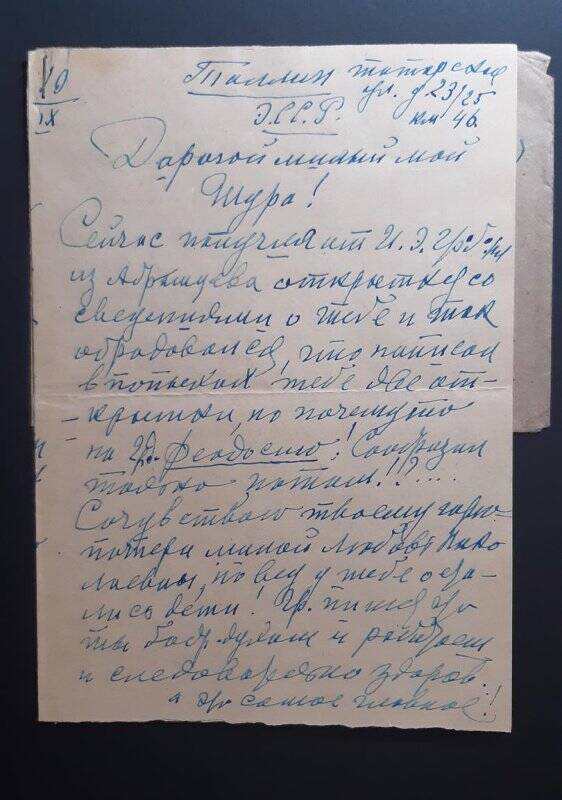 10
IX
Таллин татарская
ул. д 23/25
Э.С.С.Р. кв 46.
Дорогой милый мой
Шура!
Сейчас получил от И. Э. Грабаря
из Абрамцева открытку со
сведениями о тебе и так
обрадовался, что написал
в попыхах тебе две от-
крытки, но почему то
на гр. Феодосию! Сообразил
только потом!!?....
Сочувствую твоему горю
потери милой Любови Нико
лаевны, но ведь у тебя оста-
лись дети! Гр. пишет что
ты бодр духом и работаешь
и следовательно здоров.
а это самое главное!